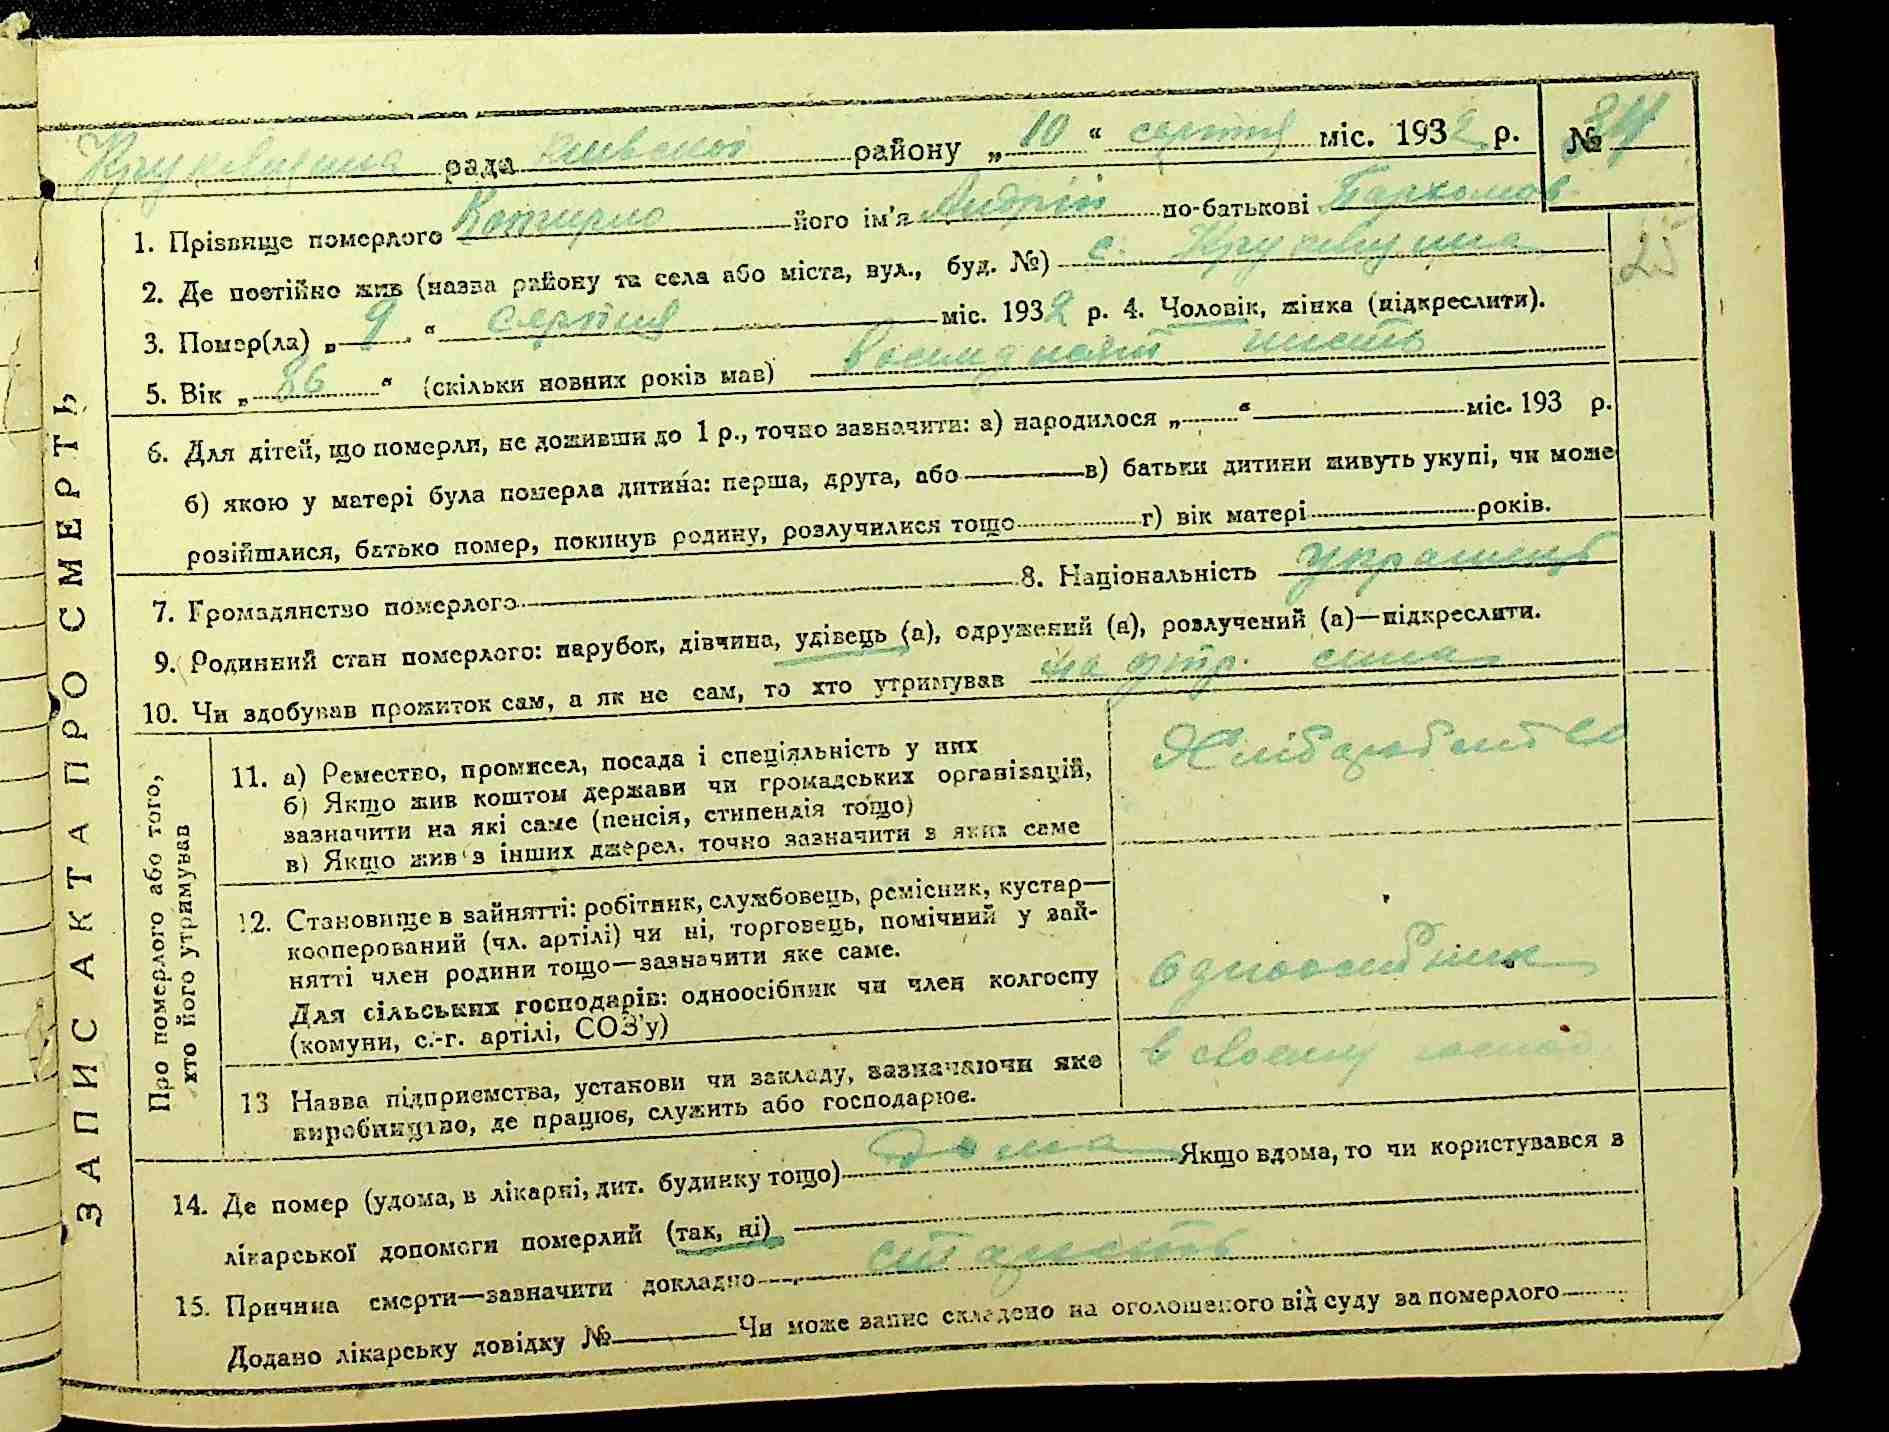 Крукивщина рада київской району „10“ серпня міс. 1932 р. № 84
1. Прізвище померлого його ім'я Андрій по-батькові Пархомов
25
2. Де постійно жив (назва району та села або міста, вул., буд. №) с. Крукивщина
3. Помер(ла) „9“ серпня міс. 1932 р. 4. Чоловік, жінка (підкреслити).
5. Вік „86“ (скільки повних років мав) восимдисят шисть
6. Для дітей, що померли, не доживши до 1 р., точно зазначити: а) народилося „ “ міс. 193 р.
б) якою у матері була померла дитина: перша, друга, або в) батьки дитини живуть укупі, чи може
розійшлися, батько помер, покинув родину, розлучилися тощо г) вік матері років.
7. Громадянство померлого 8. Національність украинець
9. Родинний стан померлого: парубок, дівчина, удівець (а), одружений (а), розлучений (а)—підкреслити.
10. Чи здобував прожиток сам, а як не сам, то хто утримував на утр. сина
ЗАПИС АКТА ПРО СМЕРТЬ
Про померлого або того,
хто його утримував
11. а) Ремество, промисел, посада і спеціяльність у них
б) Якщо жив коштом держави чи громадських організацій,
зазначити на які саме (пенсія, стипендія тощо)
в) Якщо жив з інших джерел, точно зазначити з яких саме
12. Становище в зайнятті: робітник, службовець, ремісник, кустар—
кооперований (чл. артілі) чи ні, торговець, помічний у зай-
нятті член родини тощо—зазначити яке саме.
Для сільських господарів: одноосібник чи член колгоспу
(комуни, с.-г. артілі, СОЗ'у)
одноосибник
13 Назва підприємства, установи чи закладу, зазначаючи яке
виробництво, де працює, служить або господарює.
в своему господ.
14. Де помер (удома, в лікарні, дит. будинку тощо) дома Якщо вдома, то чи користувався в
лікарської допомоги померлий (так, ні)
15. Причина смерти—зазначити докладно старисть
Додано лікарську довідку № Чи може запис складено на оголошеного від суду за померлого